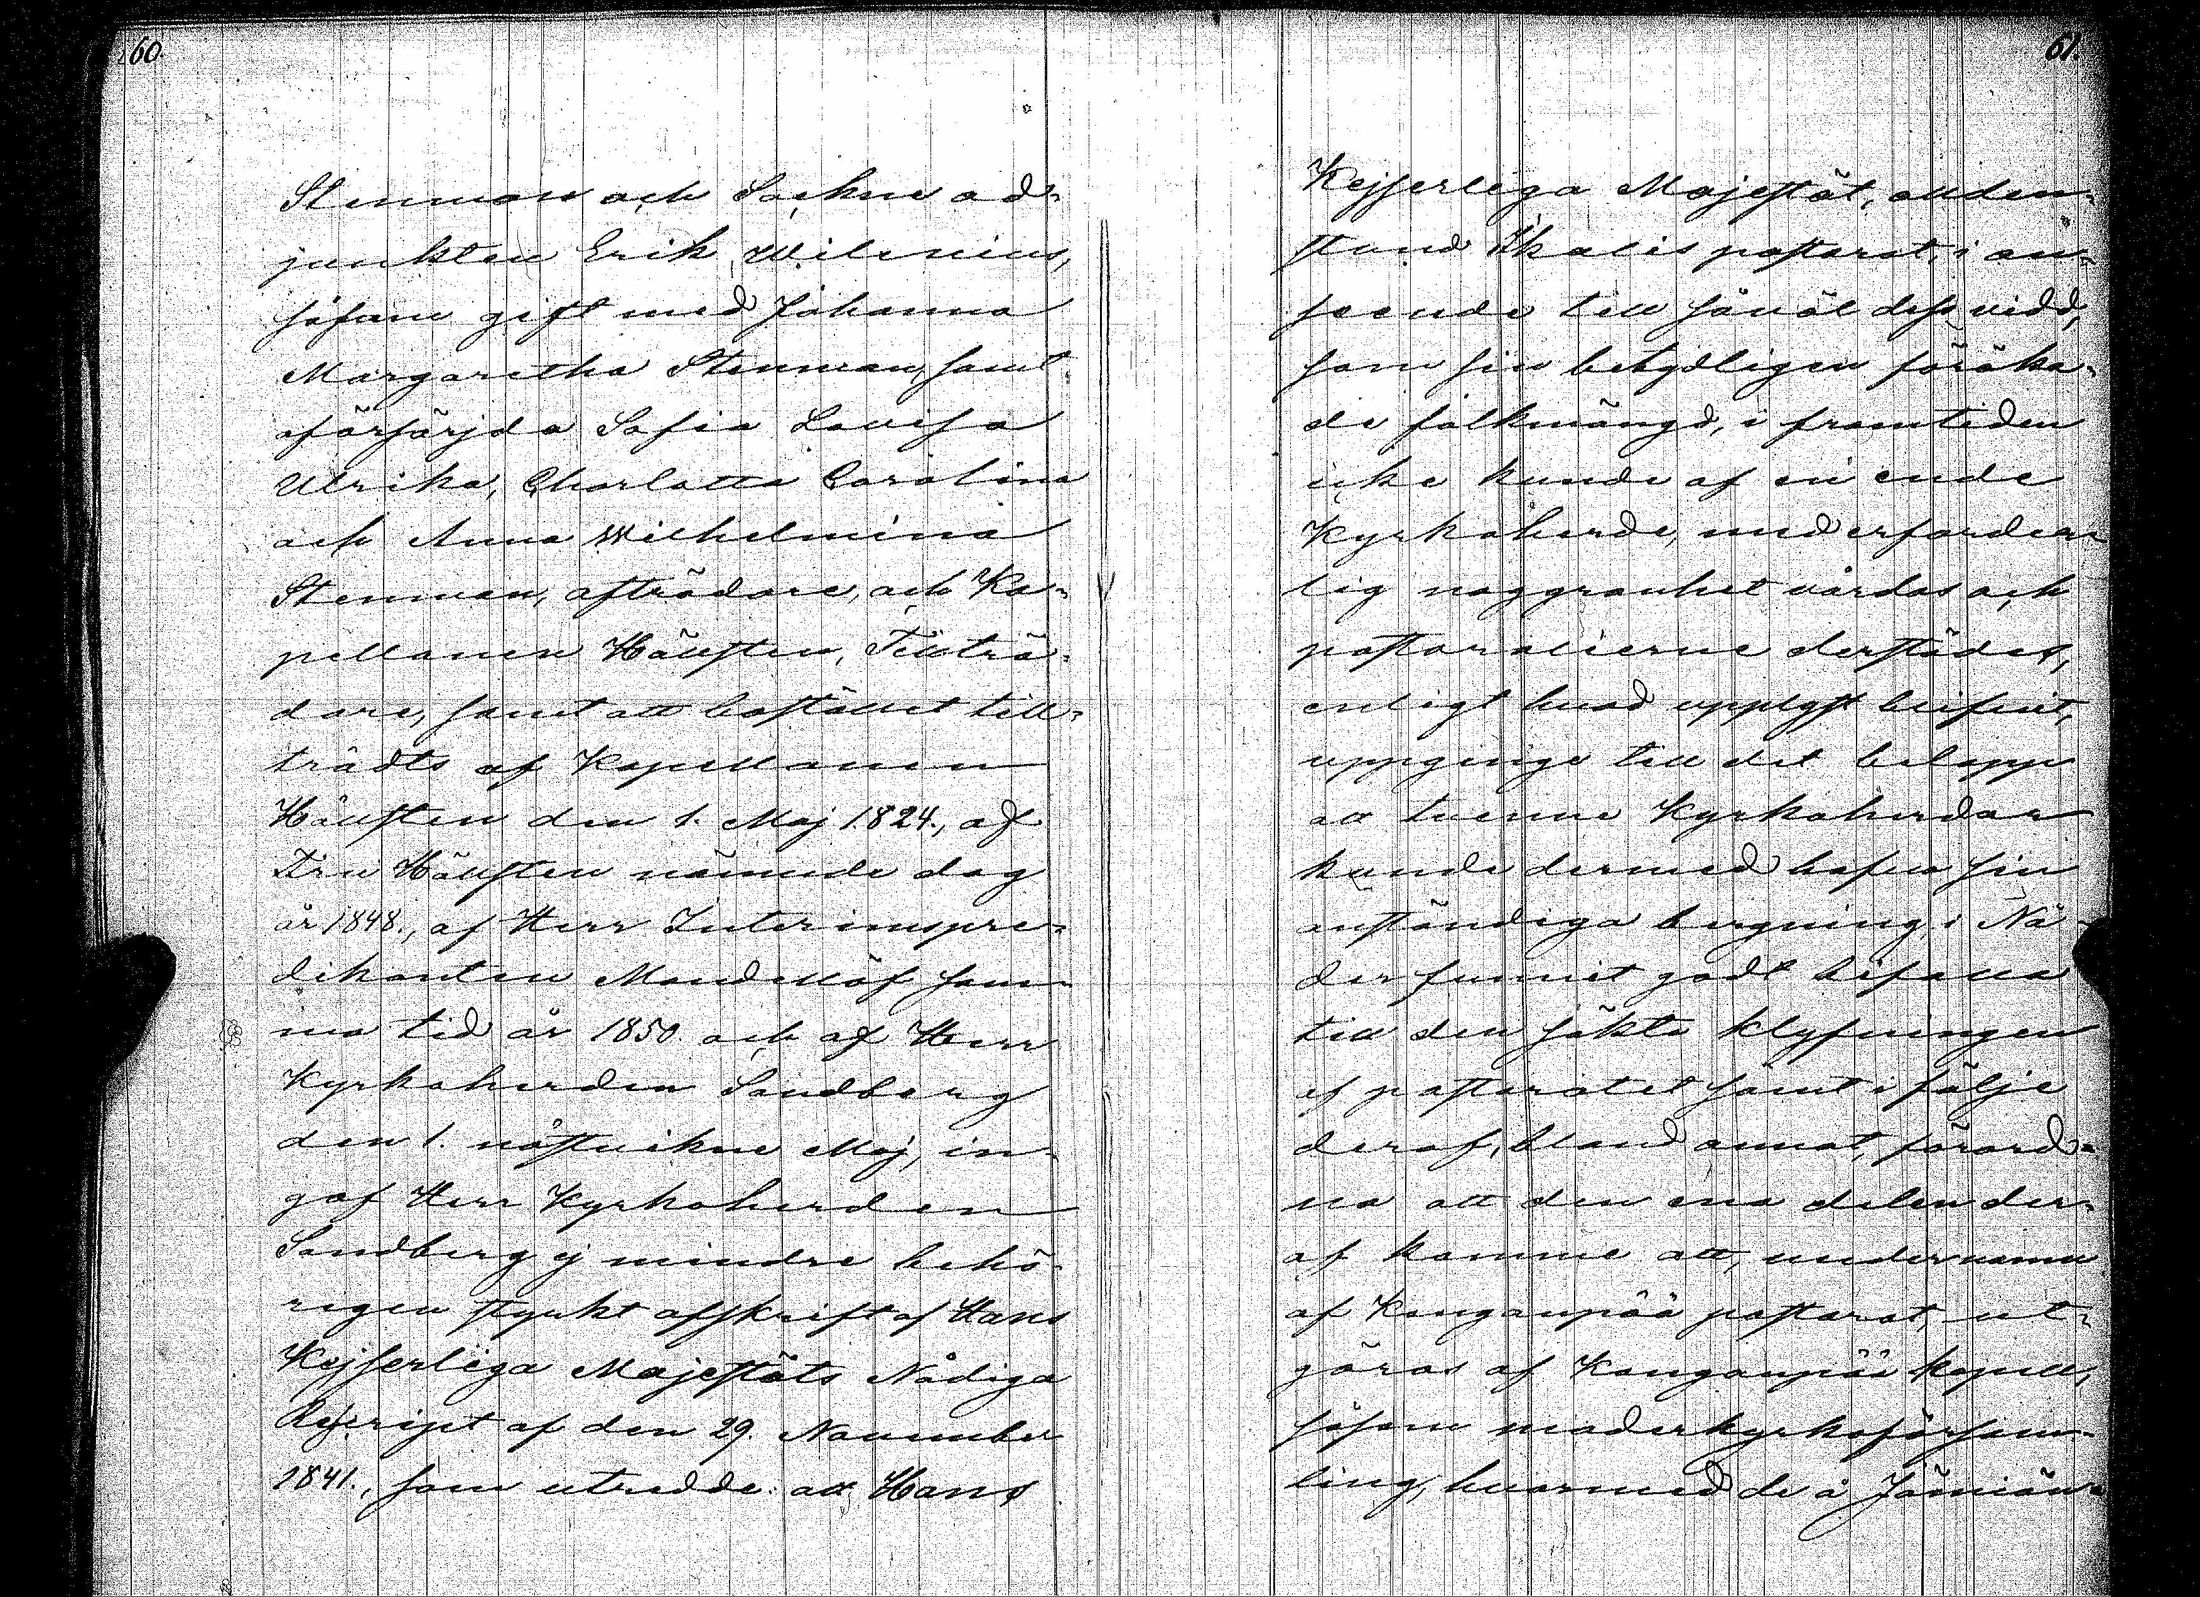 60.
Stenman och Sockne ad-
junkten Erik Wilenius,
såsom gift med Johanna
Margaretha Stenman, samt
oförsörjda Sofia Lovisa
Ulrika, Charlotta Carolina
och Anna Wilhelmina
Stenman, afträdare, och Ka-
pellanen Hällsten, Tillträ-
dare, samt att bostället till-
trädts af Kapellanen
Hällsten den 1. Maj 1824., af
Fru Hällsten nämnde dag
år 1848., af Herr Interimspre-
dikanten Mandellöf sam-
ma tid år 1850. och af Herr
Kyrkoherden Sandberg
den 1. nästvikne Maj, in-
gaf Herr Kyrkoherden
Sandberg ej mindre behö-
rigen styrkt afskrift af Hans
Kejserliga Majestäts Nådiga
Rescript af den 29. November
1841., som utredde: att Hans
61.
Kejserliga Majestät, allden-
stund Ikalis pastorat, i an-
seende till såväl dess vidd,
som sin betydligen föröka-
de folkmängd, i framtiden
icke kunde af en ende
Kyrkoherde, med erforder-
lig noggranhet vårdas och
pastoralierne derstädes,
enligt hvad upplyst blifvit,
uppginge till det belopp
att tvenne Kyrkoherdar
kunde dermed hafva sin
anständiga bergning, i Nå-
der funnit godt bifalla
till den sökta klyfningen
af pastoratet samt i följe
deraf, bland annat, förord-
na att den ena delen der-
af komme att, under namn
af Kangaupää pastorat, ut-
göras af Kangaupää kapell,
såsom moderkyrkoförsam-
ling, hvarmed de å Jämiän-